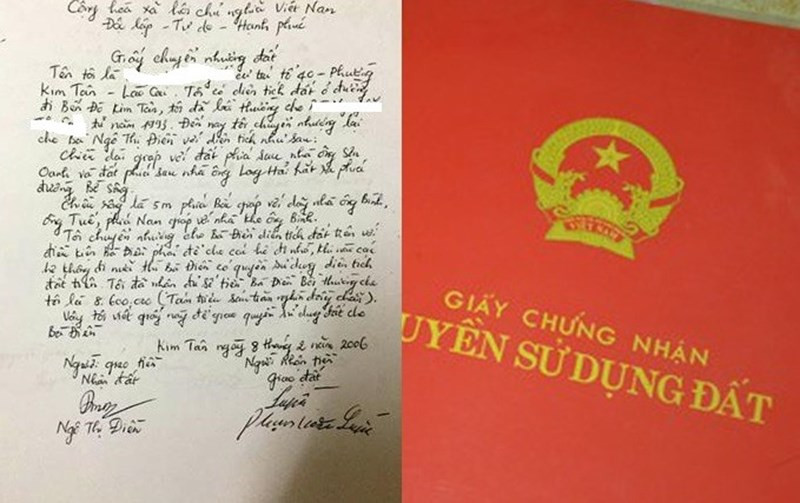 Cộng hoà xã hội chủ nghĩa Việt Nam
Độc lập - Tự do - Hạnh phúc
Giấy chuyển nhượng đất
Tên tôi là cư trú tổ 40 - Phường
Kim Tân - Lào Cai. Tôi có diện tích đất ở đường
đi Bến Đá Kim Tân, tôi đã bồi thường cho
từ năm 1993. Đến nay tôi chuyển nhượng lại
cho Bà Ngô Thị Điền với diện tích như sau:
Chiều dài giáp với đất phía sau nhà ông Sơn
Oanh và đất phía sau nhà ông Long Hải phía
đường Bờ Sông.
Chiều rộng là 5m phía Bắc giáp với nhà ông Bình,
ông Tuế, phía Nam giáp với nhà kho ông Bình.
Tôi chuyển nhượng cho Bà Điền diện tích đất trên với
điều kiện Bà Điền phải để cho các hộ đi nhờ, khi nào các
hộ không đi nữa thì Bà Điền có quyền sử dụng diện tích
đất trên. Tôi đã nhận đủ số tiền Bà Điền Bồi thường cho
tôi là 8.600.000 (Tám triệu sáu trăm nghìn đồng chẵn).
Vậy tôi viết giấy này để giao quyền sử dụng đất cho
Bà Điền
Kim Tân ngày 8 tháng 2 năm 2006
Người giao tiền Người nhận tiền
Nhận đất Giao đất
Ngô Thị Điền
VIỆT NAM
GIẤY CHỨNG NHẬN
UYỀN SỬ DỤNG ĐẤT